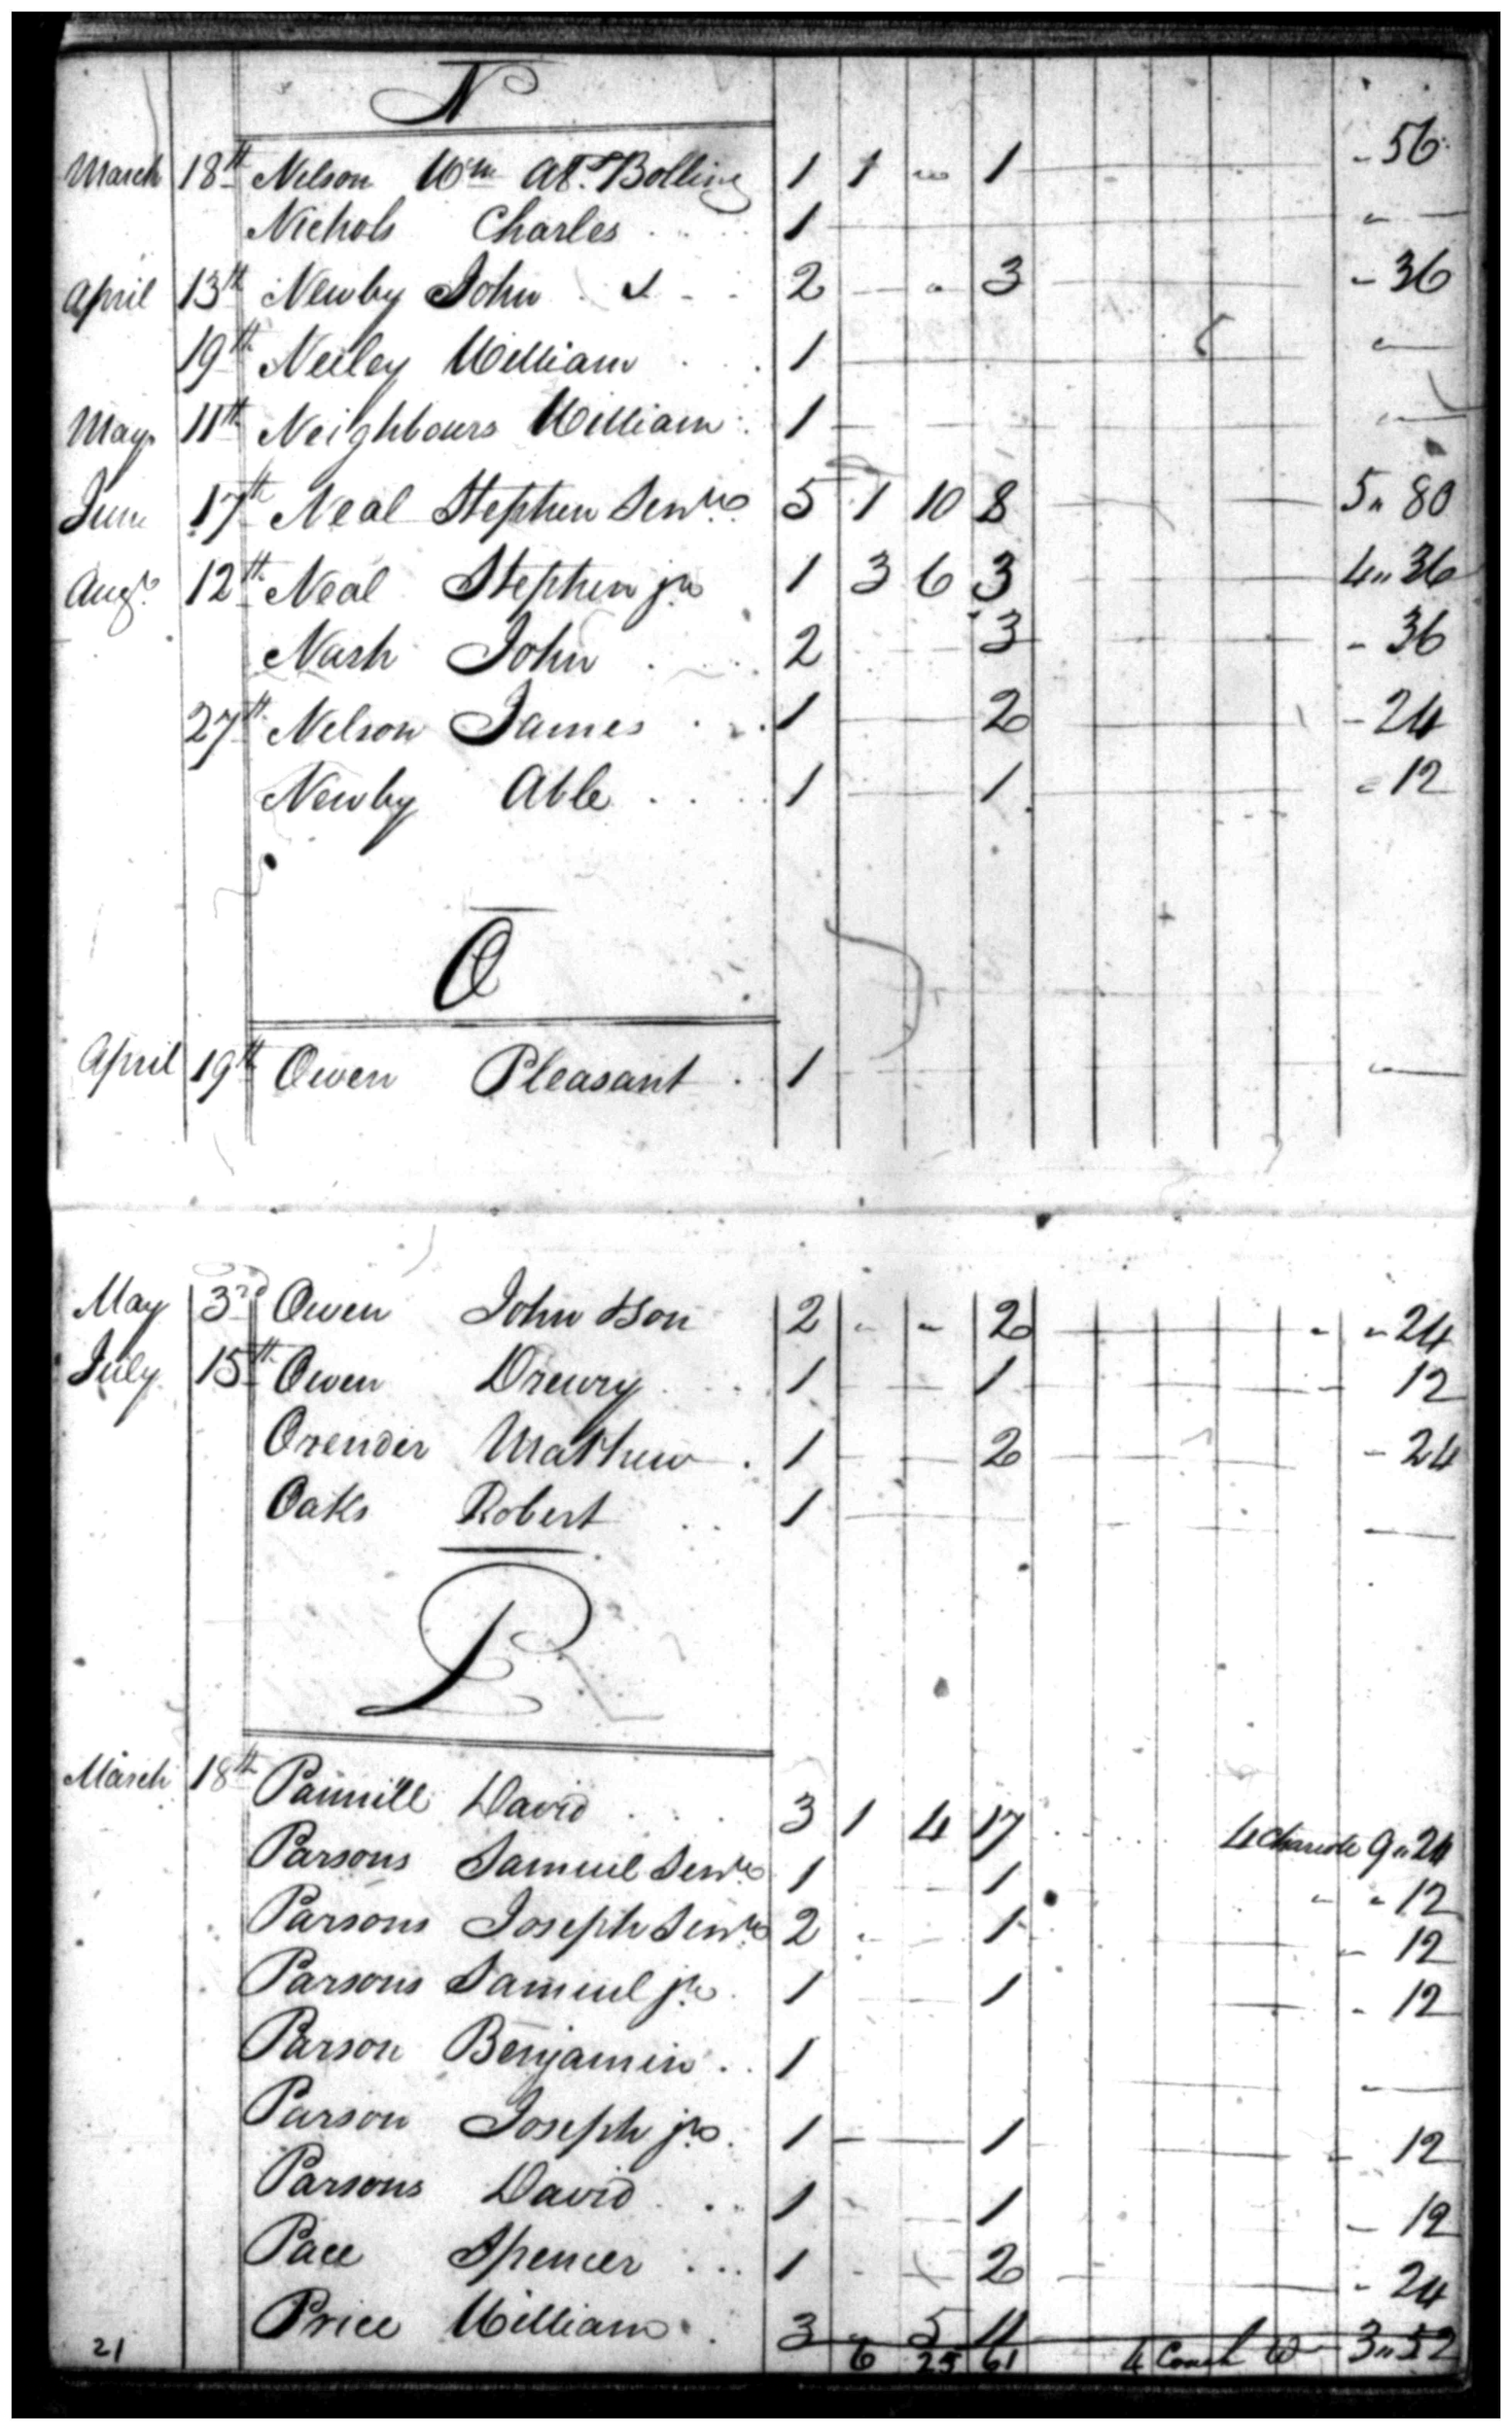 N
March 18th Nelson Wm at Bolling 1 1 " 1 - 56
Nichols Charles 1 "
April 13th Newby John 2 " 3 - 36
19th Neiley William 1
May 11th Neighbours William 1
June 17th Neal Stephen Senr 5 1 10 8 5 " 80
Augt 12th Neal Stephen jr 1 3 6 3 4 " 36
Nash John 2 3 - 36
27th Nelson James 1 2 - 24
Newby Able 1 1 12
O
April 19th Owen Pleasant 1
May 3rd Owen John 2 " " 2 " 24
July 15th Owen Drewry 1 1 12
Oxender Mathew 1 2 - 24
Oaks Robert 1
P
March 18th Pannill David 3 1 4 17 4 Chariot 9 " 24
Parsons Samuel Senr 1 1 " 12
Parsons Joseph Senr 2 1 12
Parsons Samuel jr 1 1 - 12
Parson Benjamin 1
Parson Joseph jr 1 1 12
Parsons David 1 1 12
Pace Spencer 1 2 - 24
Price William 3 " 5 11 3 " 52
21 6 25 61 4 Coach W